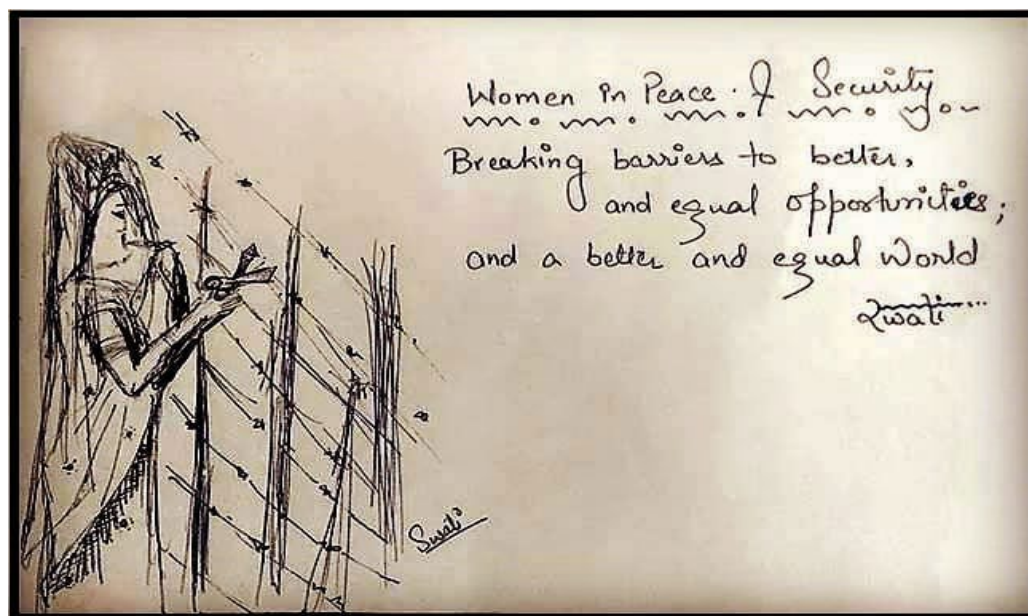 Women in Peace & Security
Breaking barriers to better,
and equal opportunities;
and a better and equal World
Swati...
Swati